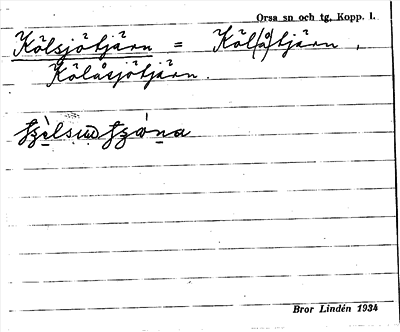 Orsa sn och tg, Kopp. l.
Kölsjötjärn = Köl(å)tjärn,
Kölåsjötjärn.
Bror Lindén 1934